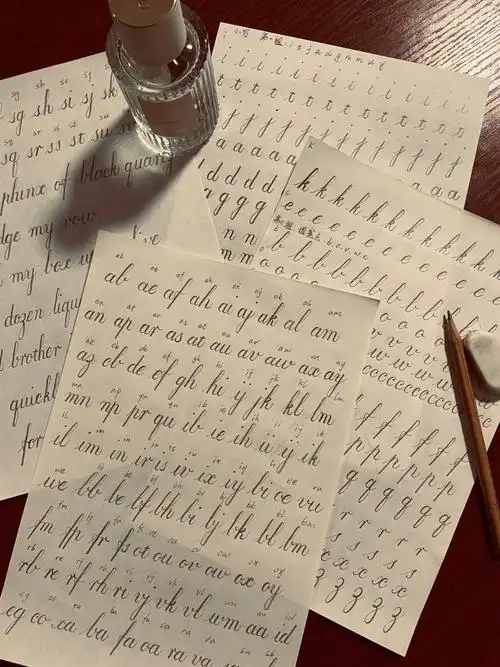 sg sh si sj sk
sq sr ss st su sv
phinx of black
dge my vow
my box
dozen liqu
brother
quickl
for
i i i i i i i i i i i
t t t t t t t t t t t
j j j j j j j j j j
a a a a a a a a a
d d d d
g g g g
n n
m m
k k k k k k k k k k
e e e e e e e e e e
b b b b b b b b b
o o o o o o
v v v v
w w w w w
c c c c c c c c c c
f f f f f f
p p p p p p p
q q q q q q
r r r r r
s s s s s
x x x x
z z z z
ab ae af ah ai aj ak al am
an ap ar as at au av aw ax ay
az cb de ef gh hi ij jk kl lm
mn np pr qu ib ie ih ii ij ik
il im in ir is iv ix iy bi oe vu
we bb be bf bh bi bj bk bl bm
fm fp fr fs ot ou ov ow ox oy
rb re rf rh ri vj vk vl wm aa id
cg co xa ba fa oa ra va